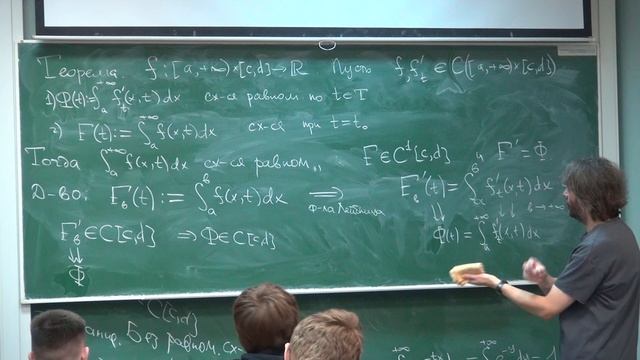 Теорема. f: [a,+∞)×[c,d]→ℝ Пусть f, f'ₜ ∈ C([a,+∞)×[c,d])
1) Φ(t):=∫ₐ^{+∞} f'ₜ(x,t)dx сх-ся равном по t∈T
2) F(t):=∫ₐ^{+∞} f(x,t)dx сх-ся при t=t₀
Тогда ∫ₐ^{+∞} f(x,t)dx сх-ся равном,, F∈C¹[c,d] и F'=Φ
Д-во: F_в(t):=∫ₐ^в f(x,t)dx ⟹ ф-ла Лейбница F_в'(t)=∫ₐ^в f'ₜ(x,t)dx
в→+∞
F_в'∈C[c,d] ⇒ Φ∈C[c,d] Φ(t)=∫ₐ^{+∞} f'ₜ(x,t)dx
⇊
Φ
C[c,d]
Без равном. сх-